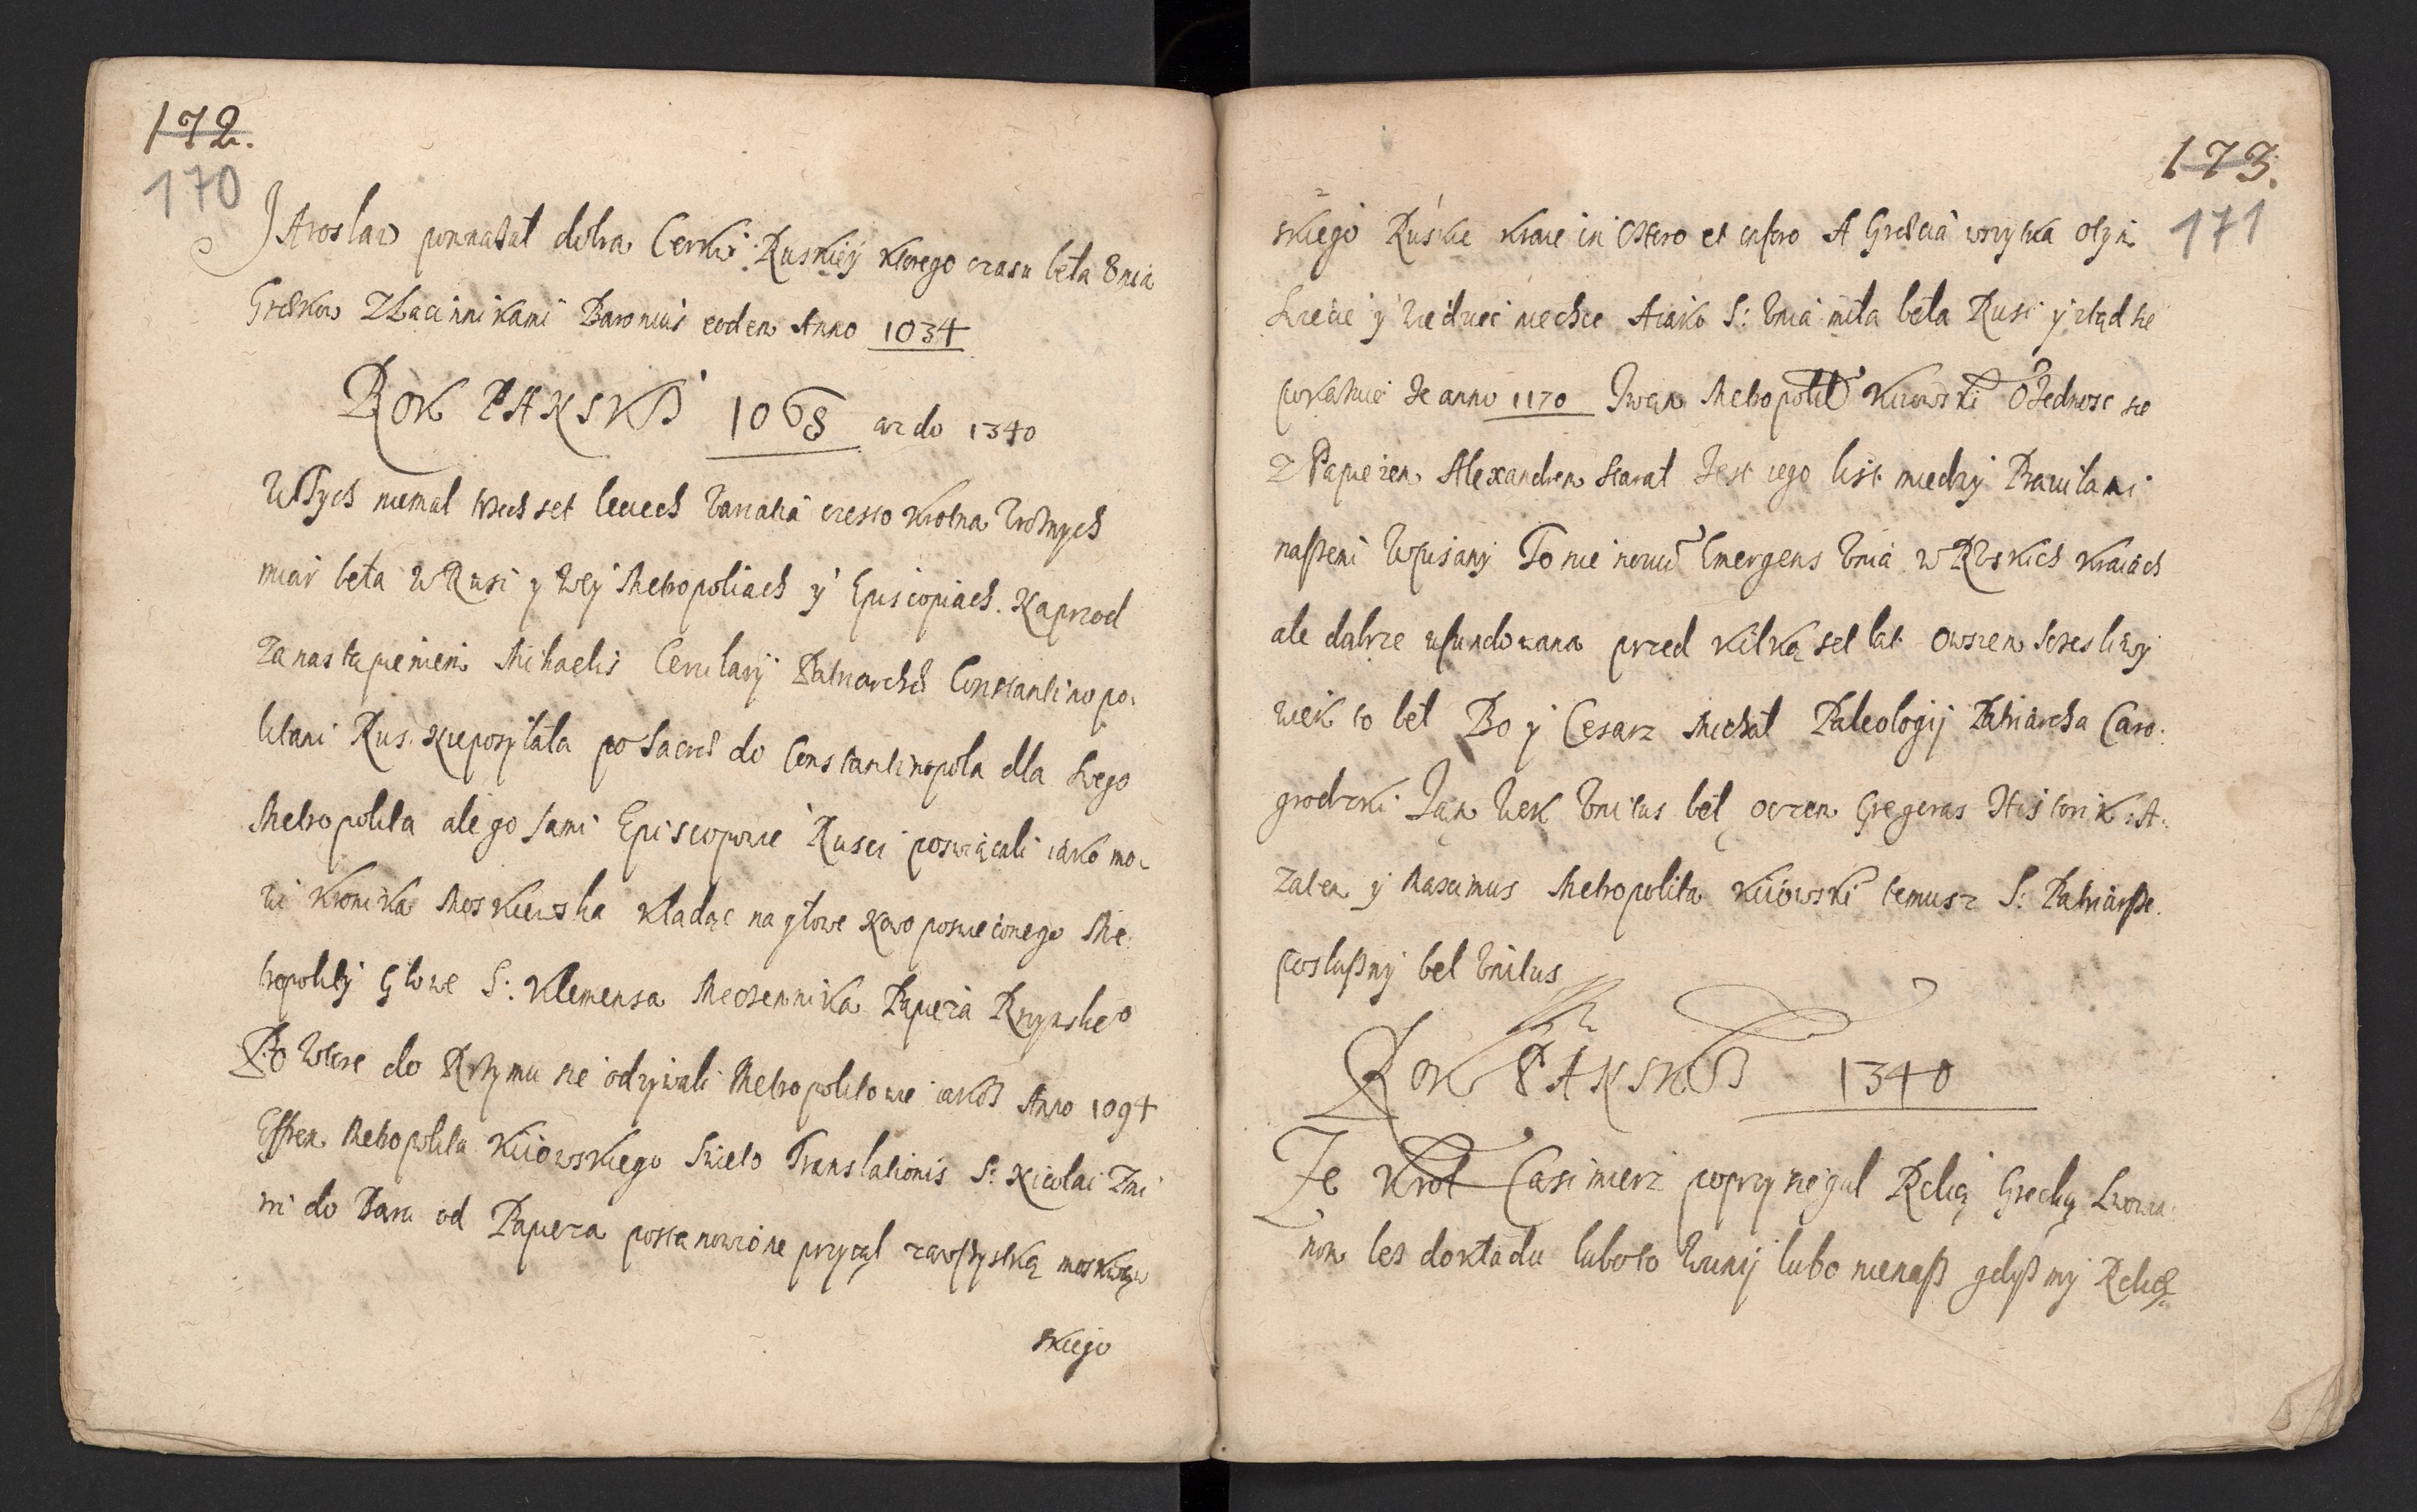 172.
170
Jaroslaw pomnażał dobra Cerkwi Ruskiey ktorego czasu beła Unia
Grekow z Łacinnikami Baronius eodem Anno 1034
ROK PANSKI 1068 az do 1340
W Tych niemal trzech set leciech variatia czesto krotna roznych
miar beła w Rusi y w ey Metropoliach y Episcopiach. Naprzod
za nastąpieniem Michaelis Cerularij Patriarchæ Constantinopo-
litani Rus. Nie posyłała po Sacrę do Constantinopola dla swego
Metropolita ale go sami Episcopowie Rusci poswiącali iako mo-
wi Kronika Moskiewska kładąc na głowe Nowo poswieconego Me-
tropolity Głowe S: Klemensa Męczennika Papieża Rzymskieo
Po wtore do Rzymu sie odzywali Metropolitowie iako Anno 1094
Effrem Metropolita Kiiowskiego Swieto Translationis S: Nicolai z Mi
ri do Baru od Papieza postanowione przyczął za wszystką moskiew
skiego
173.
171
skiego Ruskie kraie in Ostro et castro A Grecia wszytka o tym
Swiecie y wiedzieć niechce A iako S: Unia miła beła Rusi y ztąd sie
pokazuie że anno 1170 Iwan Metropolit Kiiowski O Jednosc sie
z Papieżem Alexandrem starał Jest iego list miedzy Prawilami
naszemi Wpisany To nie nowū Emergens Unia w Ruskich kraiach
ale dabrze ufundowana przed kilką set lat owszem sczesliwy
wiek to beł Bo y Cesarz Michał Paleologij Patriarcha Caro-
grodzki Jąn Wek Unitus beł o czem Gregoras Historik A-
zatem y Maximus Metropolita Kiiowski temusz S: Patriarsze
poslusżny bel Unitus
ROK PANSKI 1340
Ze Krol Casimierz poprzysiągał Relią Grecką Lwowia-
nom bes dokładu lubo to w unij lubo nie nasz gdysz my Relią